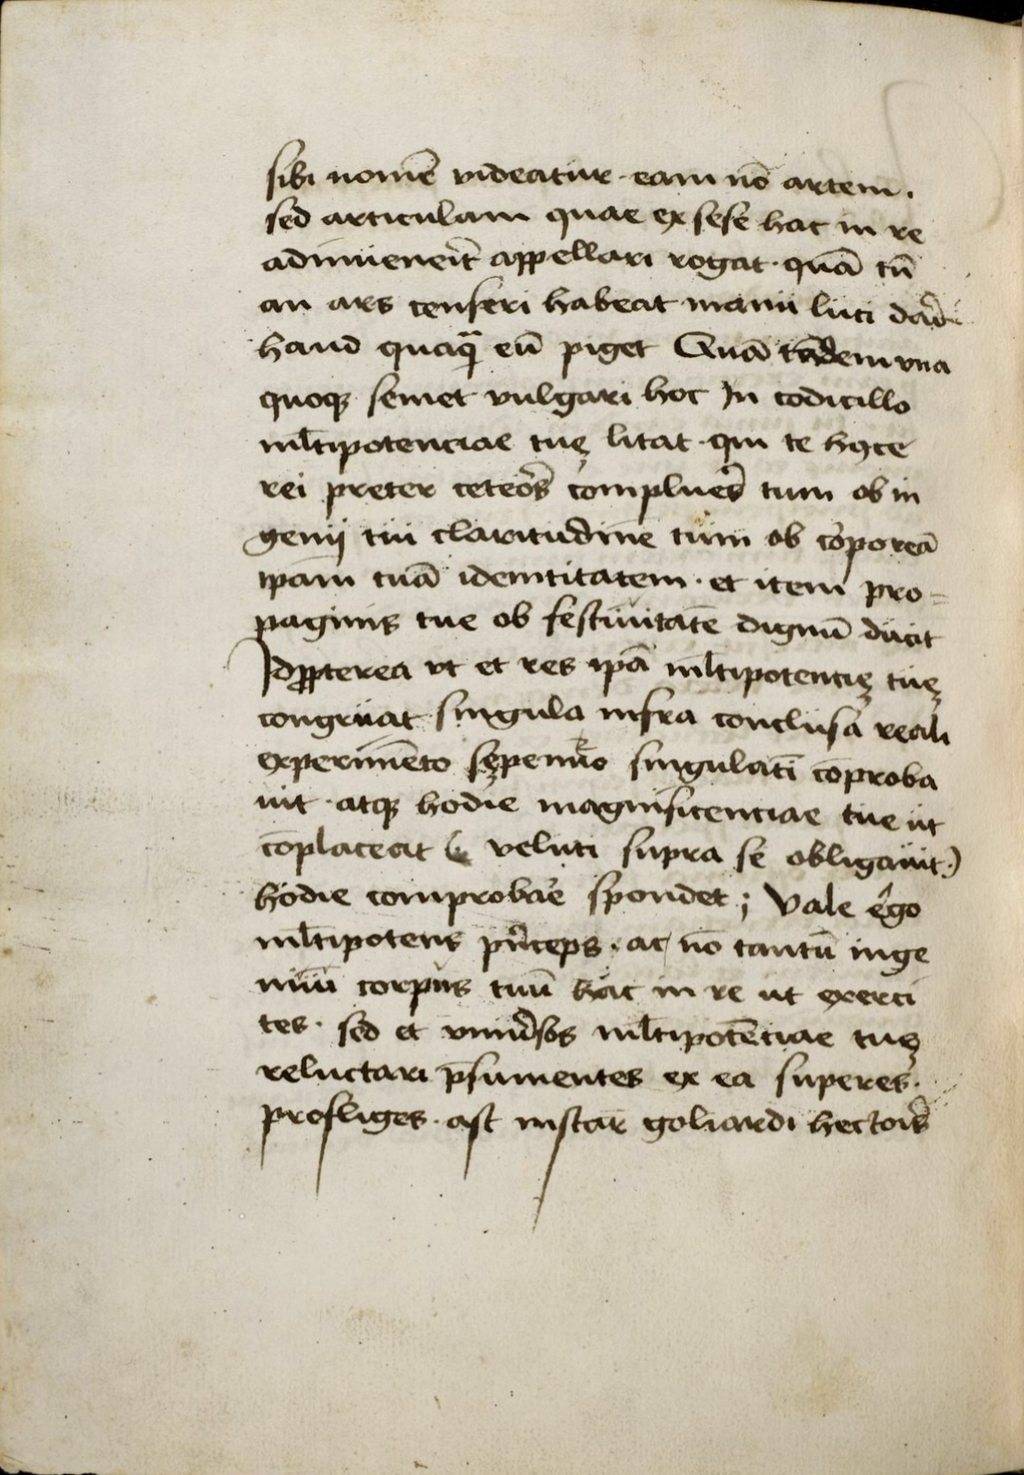 sibi nomē videatur · eam nō artem .
sed articulam quae ex sese hac in re
adinueneit̄ appellari rogat · quā tn̄
an ars censeri habeat manu luci dar̄
haud quaqꝫ eū piget Quā tādem vna
quoqꝫ semet vulgari hoc In codicillo
ml̄tipotenciae tuę litat · qui te
rei preter ceteōs complueš tum ob in
genij tui claritudinē tum ob coꝛporeā
ipam tuā idemtitatem · et item pro=
paginis tue ob festiuitatē dignū ducit
Idꝓpterea vt et res ipā ml̄tipotentię tuę
congruat singula infra conclusa reali
experimēto sępenūo singulatī cōproba
uit · atqꝫ hodie magnificenciae tue ut
cōplaceat ( veluti supra se obligauit )
hodie comprobaē spondet ; Vale ergo
ml̄tipotens pn̄ceps · ac nō tantū inge
niū corpus tuū hac in re ut exerci
tes · sed et vniūsos ml̄tipotēciae tuę
reluctari p̄sumentes ex ea superes ·
profliges · ast instar goliardi hectoris̄